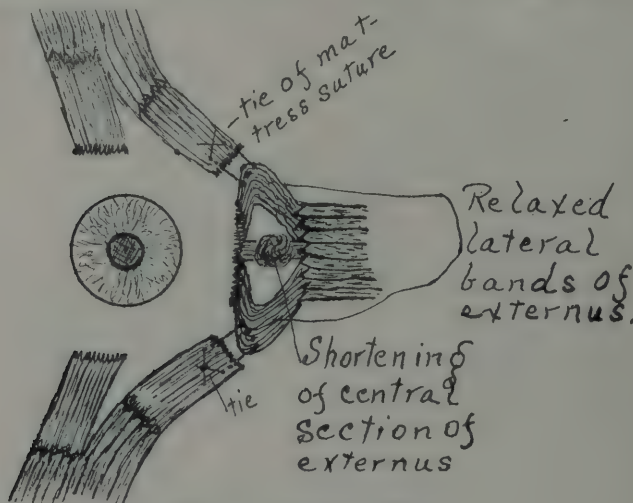 tie of mat-
tress suture
Relaxed
lateral
bands of
externus.
Shortening
of central
section of
externus
tie